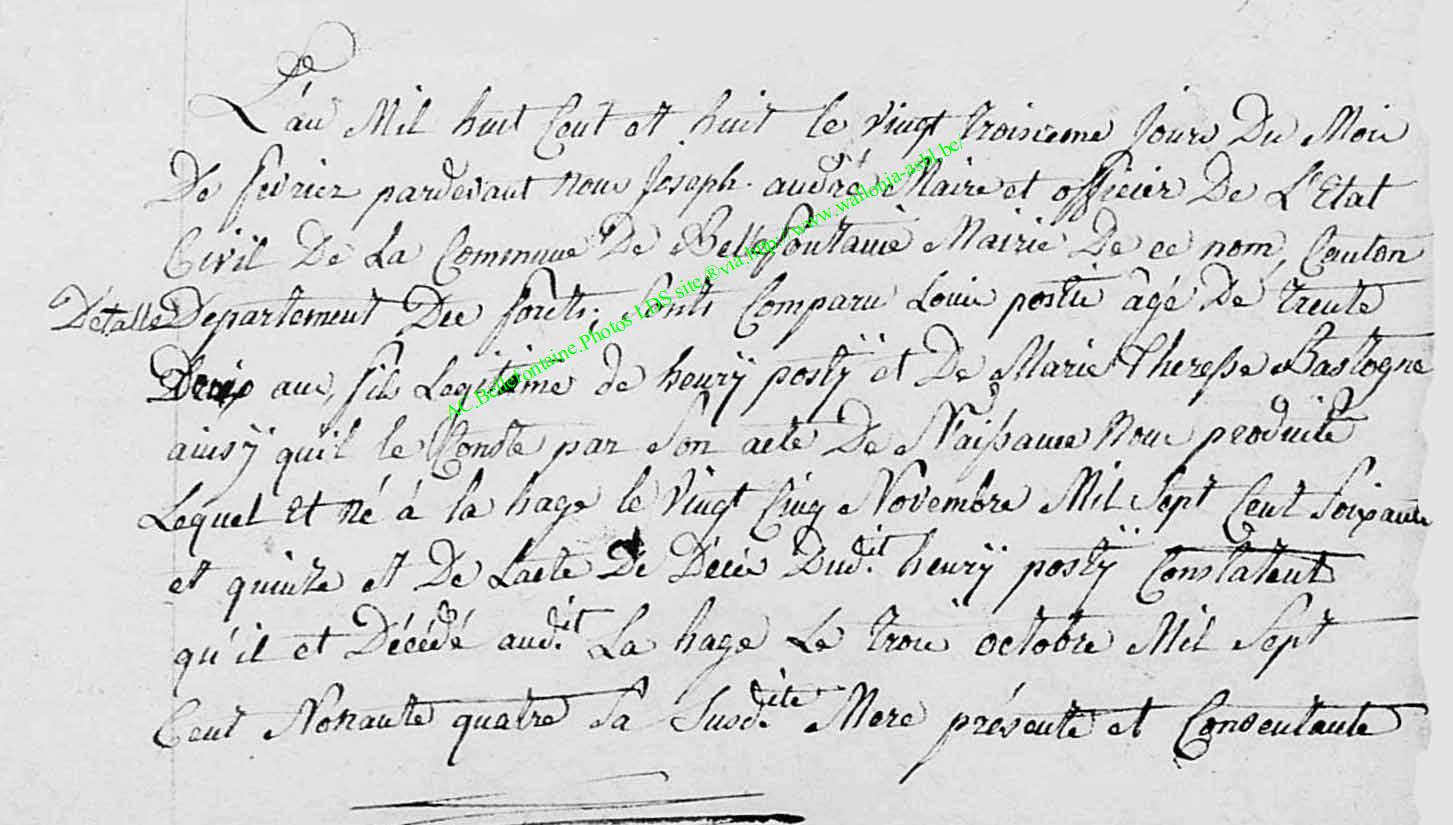 L'an Mil huit Cent et huit le vingt troisieme Jour Du Mois
De fevrier pardevant nous Joseph andré Maire et officier De L'Etat
Civil De La Commune De Bellefontaine Mairie De ce nom, Canton
Detalle Departement Des forêts, Sont Comparu Louis postÿ âgé De trente
Deux ans, fils Legitime de henrÿ postÿ et De Marie Therese Bastogne
ainsÿ qu'il le Conste par Son acte De Naissance Nous produite
Lequel et né à la hage le vingt Cinq Novembre Mil Sept Cent Soixante
et quinze et De Lacte De Décès Dud.it henrÿ postÿ Constatent
qu'il et Décédé aud.it La hage Le trois octobre Mil Sept
Cent Nonante quatre Sa Susd.ite Mere présente et Consentante
AC.Bellefontaine.Photos LDS site @via.http://www.wallonia-asbl.be/